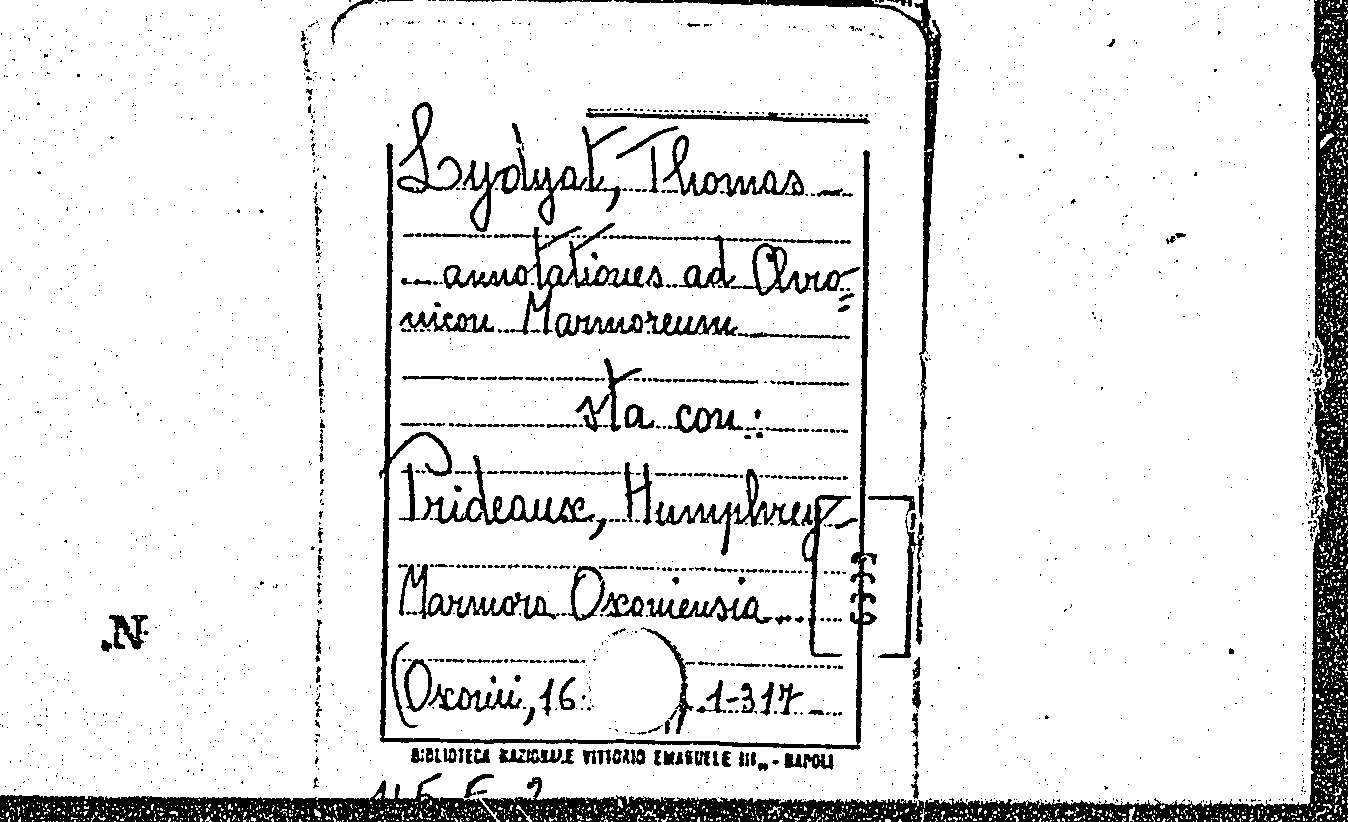 Lydyat, Thomas
annotationes ad Chro=
nicon Marmoreum
sta con:
Prideaux, Humphrey
Marmora Oxoniensia...
(Oxonii, 16 ), 1-317
BIBLIOTECA NAZIONALE VITTORIO EMANUELE III„ - NAPOLI
N.